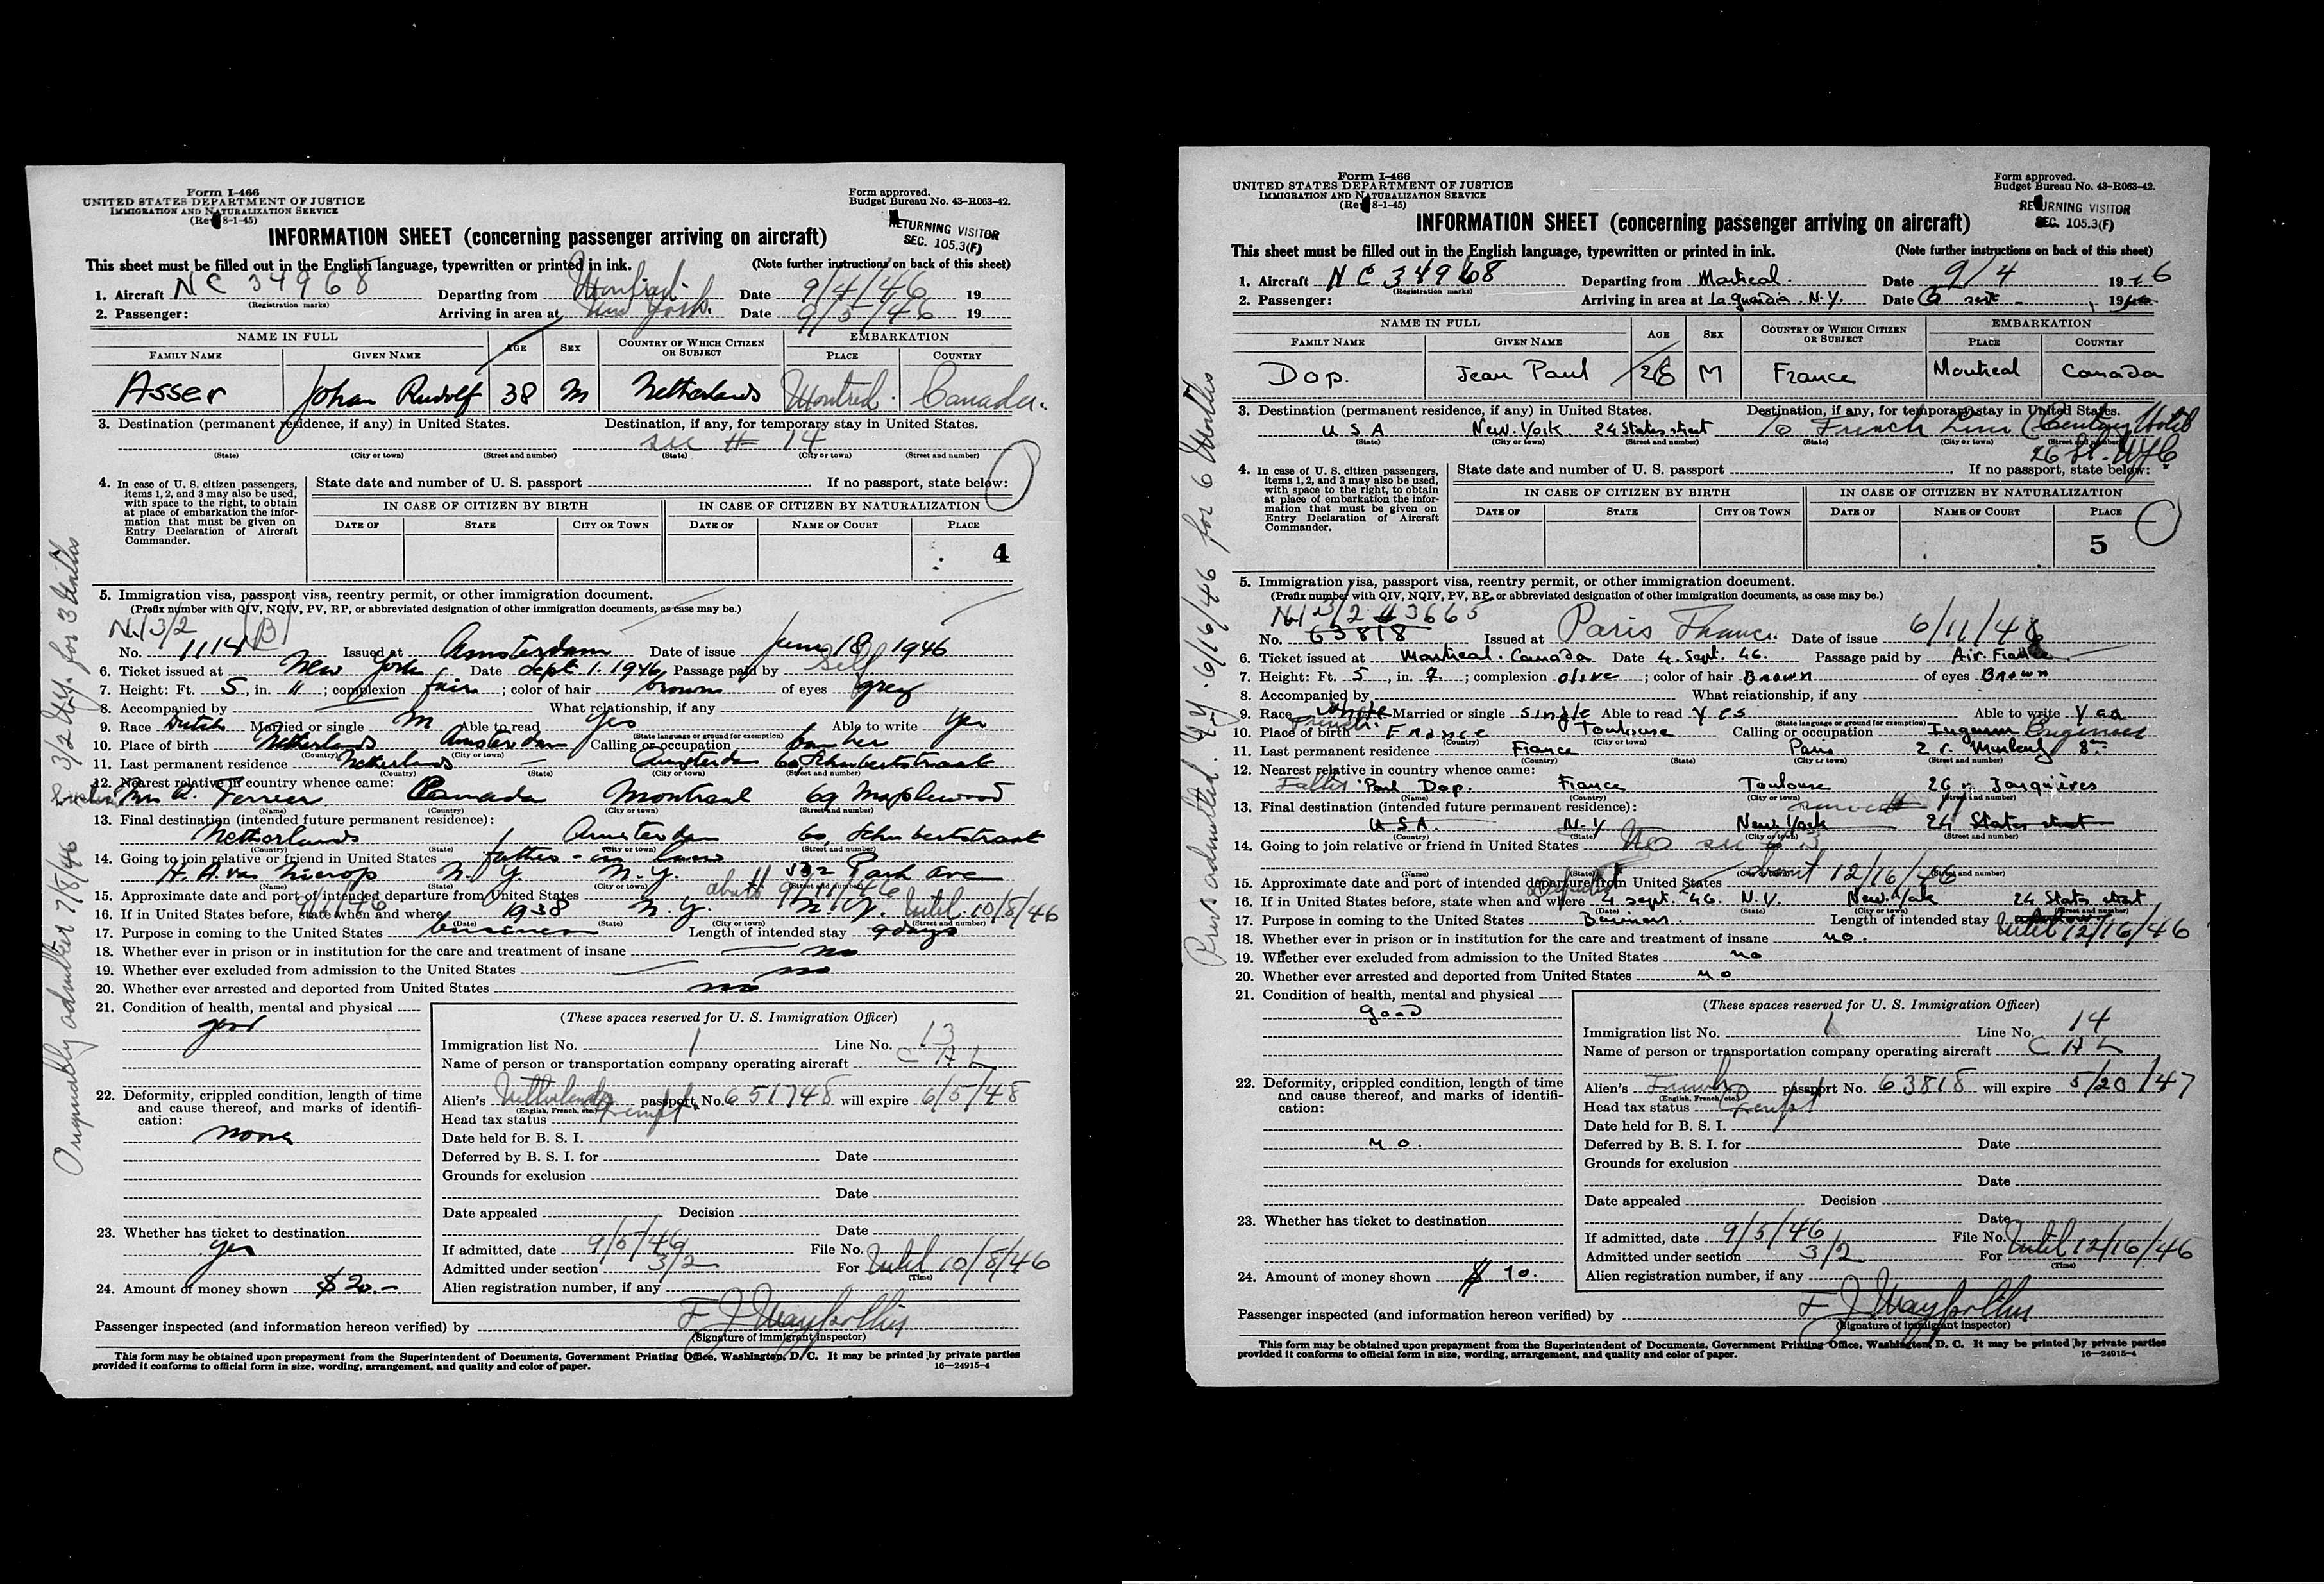 Form I-466
UNITED STATES DEPARTMENT OF JUSTICE
IMMIGRATION AND NATURALIZATION SERVICE
(Rev 8-1-45)
Form approved.
Budget Bureau No. 43-R063-42.
RETURNING VISITOR
SEC. 105.3(F)
INFORMATION SHEET (concerning passenger arriving on aircraft)
This sheet must be filled out in the English language, typewritten or printed in ink. (Note further instructions on back of this sheet)
1. Aircraft NC 34968 Departing from Montreal Date 9/4/46 19
(Registration marks)
2. Passenger: Arriving in area at New York. Date 9/5/46 19
NAME IN FULL AGE SEX COUNTRY OF WHICH CITIZEN OR SUBJECT EMBARKATION
FAMILY NAME GIVEN NAME PLACE COUNTRY
Asser Johan Rudolf 38 M Netherlands Montreal Canada.
3. Destination (permanent residence, if any) in United States. Destination, if any, for temporary stay in United States.
see # 14
(State) (City or town) (Street and number) (State) (City or town) (Street and number)
4. In case of U. S. citizen passengers, items 1, 2, and 3 may also be used, with space to the right, to obtain at place of embarkation the information that must be given on Entry Declaration of Aircraft Commander.
State date and number of U. S. passport If no passport, state below:
IN CASE OF CITIZEN BY BIRTH IN CASE OF CITIZEN BY NATURALIZATION
DATE OF STATE CITY OR TOWN DATE OF NAME OF COURT PLACE
4
5. Immigration visa, passport visa, reentry permit, or other immigration document.
(Prefix number with QIV, NQIV, PV, RP, or abbreviated designation of other immigration documents, as case may be.)
3/2 (B)
No. 1114 Issued at Amsterdam Date of issue June 18 1946
6. Ticket issued at New York Date Sept. 1. 1946 Passage paid by Self
7. Height: Ft. 5, in. 11; complexion fair; color of hair brown of eyes grey
8. Accompanied by What relationship, if any
9. Race Dutch Married or single M Able to read Yes Able to write Yes
(State language or ground for exemption)
10. Place of birth Netherlands Amsterdam Calling or occupation banker
(Country) (City or town)
11. Last permanent residence Netherlands — Amsterdam 60 Schubertstraat
(Country) (State) (City or town) (Street and number)
12. Nearest relative in country whence came:
Mrs A. Ferrier Canada Montreal 69 Maplewood
(Name) (Country) (City or town) (Street and number)
13. Final destination (intended future permanent residence):
Netherlands Amsterdam 60, Schubertstraat
(Country) (State) (City or town) (Street and number)
14. Going to join relative or friend in United States father-in-law
H. A. van Nierop N.Y. N.Y. 532 Park Ave
(Name) (State) (City or town) (Street and number)
15. Approximate date and port of intended departure from United States about 9/11/46
16. If in United States before, state when and where 1938 N.Y. N.Y. Until 10/8/46
(Date) (State) (City or town) (Street and number)
17. Purpose in coming to the United States business Length of intended stay 9 days
18. Whether ever in prison or in institution for the care and treatment of insane no
19. Whether ever excluded from admission to the United States no
20. Whether ever arrested and deported from United States no
21. Condition of health, mental and physical
good
22. Deformity, crippled condition, length of time and cause thereof, and marks of identification:
none
23. Whether has ticket to destination
yes
24. Amount of money shown $20.—
(These spaces reserved for U. S. Immigration Officer)
Immigration list No. 1 Line No. 13
Name of person or transportation company operating aircraft C A L
Alien's Netherlands passport No. 651748 will expire 6/5/48
(English, French, etc.)
Head tax status Exempt
Date held for B. S. I.
Deferred by B. S. I. for Date
Grounds for exclusion
Date
Date appealed Decision
Date
If admitted, date 9/5/46 File No.
Admitted under section 3/2 For Until 10/8/46
(Time)
Alien registration number, if any
Passenger inspected (and information hereon verified) by
(Signature of immigrant inspector)
This form may be obtained upon prepayment from the Superintendent of Documents, Government Printing Office, Washington, D. C. It may be printed by private parties
provided it conforms to official form in size, wording, arrangement, and quality and color of paper. 16—24915-4
Originally admitted 7/8/46 3/2 N.Y. for 3 Months
Form I-466
UNITED STATES DEPARTMENT OF JUSTICE
IMMIGRATION AND NATURALIZATION SERVICE
(Rev 8-1-45)
Form approved.
Budget Bureau No. 43-R063-42.
RETURNING VISITOR
SEC. 105.3(F)
INFORMATION SHEET (concerning passenger arriving on aircraft)
This sheet must be filled out in the English language, typewritten or printed in ink. (Note further instructions on back of this sheet)
1. Aircraft NC 34968 Departing from Montreal. Date 9/4 1946
(Registration marks)
2. Passenger: Arriving in area at La Guardia. N.Y. Date sept 19
NAME IN FULL AGE SEX COUNTRY OF WHICH CITIZEN OR SUBJECT EMBARKATION
FAMILY NAME GIVEN NAME PLACE COUNTRY
Dop. Jean Paul 28 M France Montreal Canada
3. Destination (permanent residence, if any) in United States. Destination, if any, for temporary stay in United States.
USA New York. 24 States street c/o French Line (Century Hotel
(State) (City or town) (Street and number) (State) (City or town) (Street and number)
4. In case of U. S. citizen passengers, items 1, 2, and 3 may also be used, with space to the right, to obtain at place of embarkation the information that must be given on Entry Declaration of Aircraft Commander.
State date and number of U. S. passport If no passport, state below:
IN CASE OF CITIZEN BY BIRTH IN CASE OF CITIZEN BY NATURALIZATION
DATE OF STATE CITY OR TOWN DATE OF NAME OF COURT PLACE
5
5. Immigration visa, passport visa, reentry permit, or other immigration document.
(Prefix number with QIV, NQIV, PV, RP, or abbreviated designation of other immigration documents, as case may be.)
3/2 #3665
No. 63818 Issued at Paris France. Date of issue 6/11/46
6. Ticket issued at Montreal. Canada Date 4. Sept. 46. Passage paid by Air. France
7. Height: Ft. 5, in. 7; complexion olive; color of hair Brown of eyes Brown
8. Accompanied by What relationship, if any
9. Race white French. Married or single single Able to read Yes Able to write Yes
(State language or ground for exemption)
10. Place of birth France Toulouse Calling or occupation Engineer
(Country) (City or town)
11. Last permanent residence France Paris 2 r. 8
(Country) (State) (City or town) (Street and number)
12. Nearest relative in country whence came:
Father Paul Dop. France Toulouse 26
(Name) (Country) (City or town) (Street and number)
13. Final destination (intended future permanent residence):
USA. N.Y New York 24 States street
(Country) (State) (City or town) (Street and number)
14. Going to join relative or friend in United States No see # 3
(Name) (State) (City or town) (Street and number)
15. Approximate date and port of intended departure from United States about 12/16/46
16. If in United States before, state when and where 4 sept. 46. N.Y. New York 24 States street
(Date) (State) (City or town) (Street and number)
17. Purpose in coming to the United States Business. Length of intended stay Until 12/16/46
18. Whether ever in prison or in institution for the care and treatment of insane no.
19. Whether ever excluded from admission to the United States no
20. Whether ever arrested and deported from United States no
21. Condition of health, mental and physical
good
22. Deformity, crippled condition, length of time and cause thereof, and marks of identification:
no.
23. Whether has ticket to destination
24. Amount of money shown $ 10.
(These spaces reserved for U. S. Immigration Officer)
Immigration list No. 1 Line No. 14
Name of person or transportation company operating aircraft C A L
Alien's French passport No. 63818 will expire 5/20/47
(English, French, etc.)
Head tax status Exempt
Date held for B. S. I.
Deferred by B. S. I. for Date
Grounds for exclusion
Date
Date appealed Decision
Date
If admitted, date 9/5/46 File No.
Admitted under section 3/2 For Until 12/16/46
(Time)
Alien registration number, if any
Passenger inspected (and information hereon verified) by
(Signature of immigrant inspector)
This form may be obtained upon prepayment from the Superintendent of Documents, Government Printing Office, Washington, D. C. It may be printed by private parties
provided it conforms to official form in size, wording, arrangement, and quality and color of paper. 16—24915-4
Prev. admitted. N.Y. 6/16/46 for 6 Months